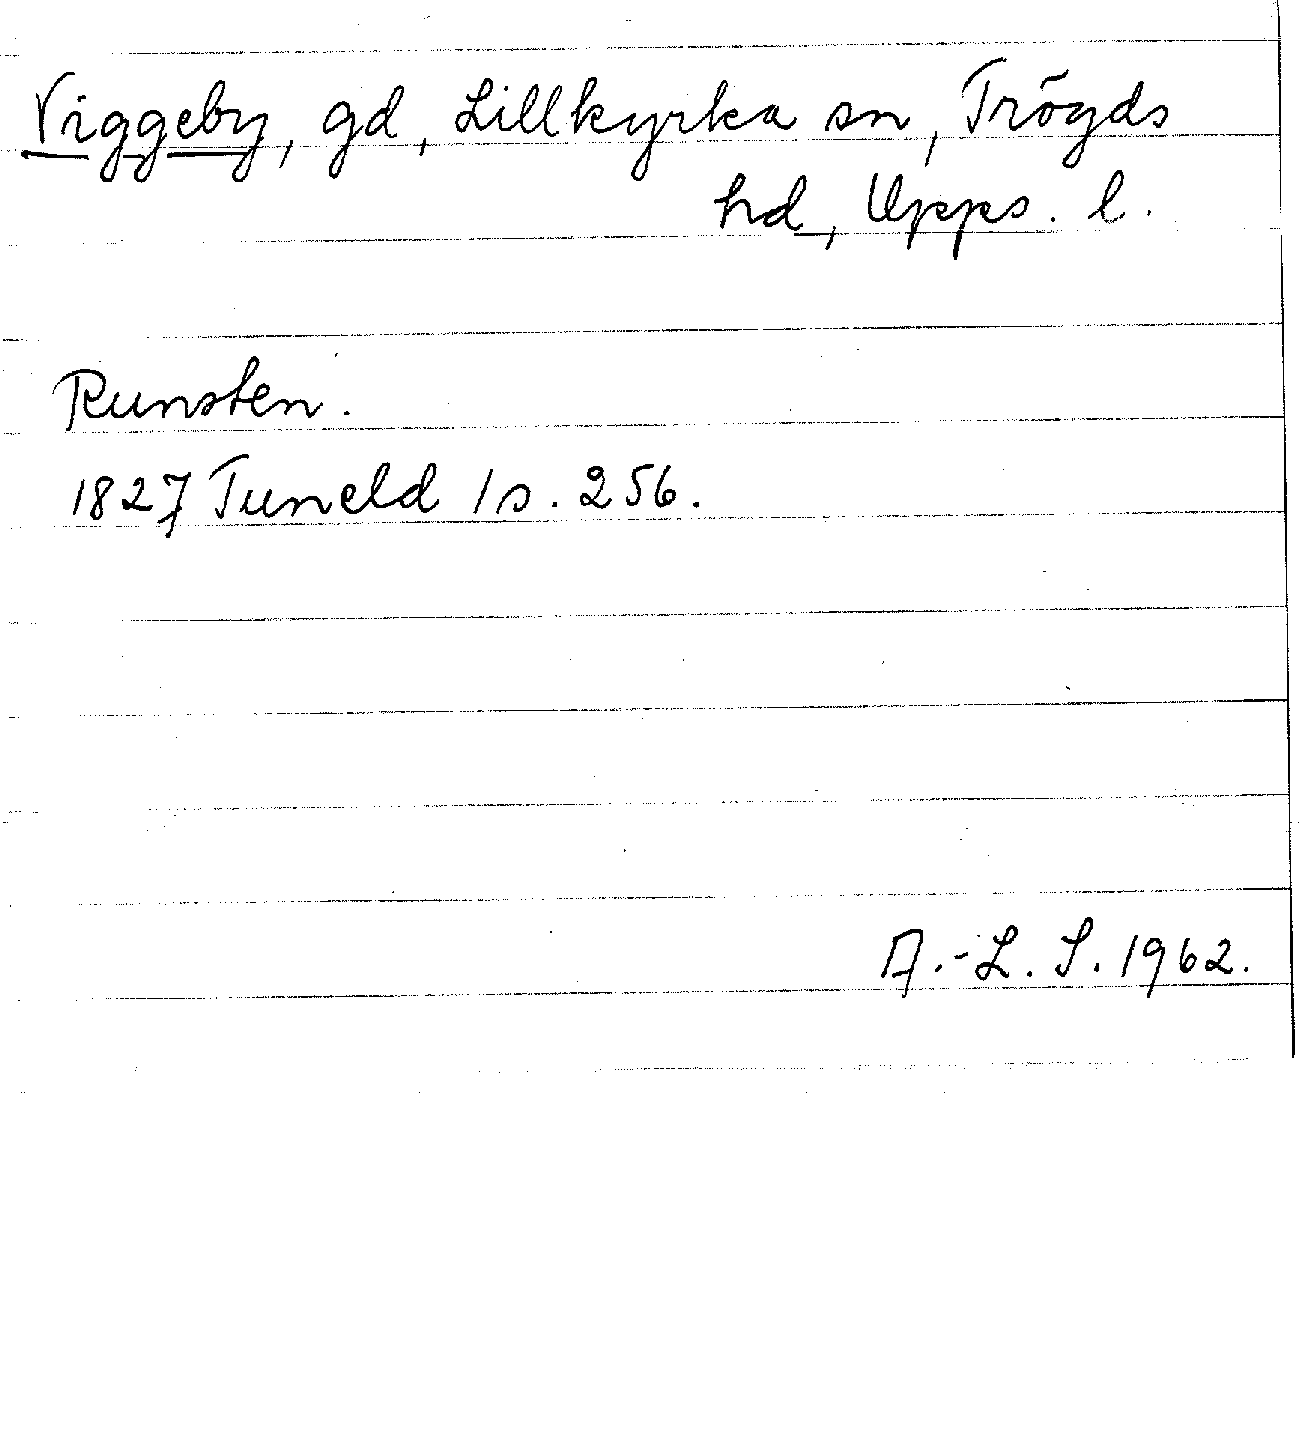 Viggeby, gd, Lillkyrka sn, Trögds
hd, Upps. l.
Runsten.
1827 Tuneld 1 s. 256.
A.-L. S. 1962.